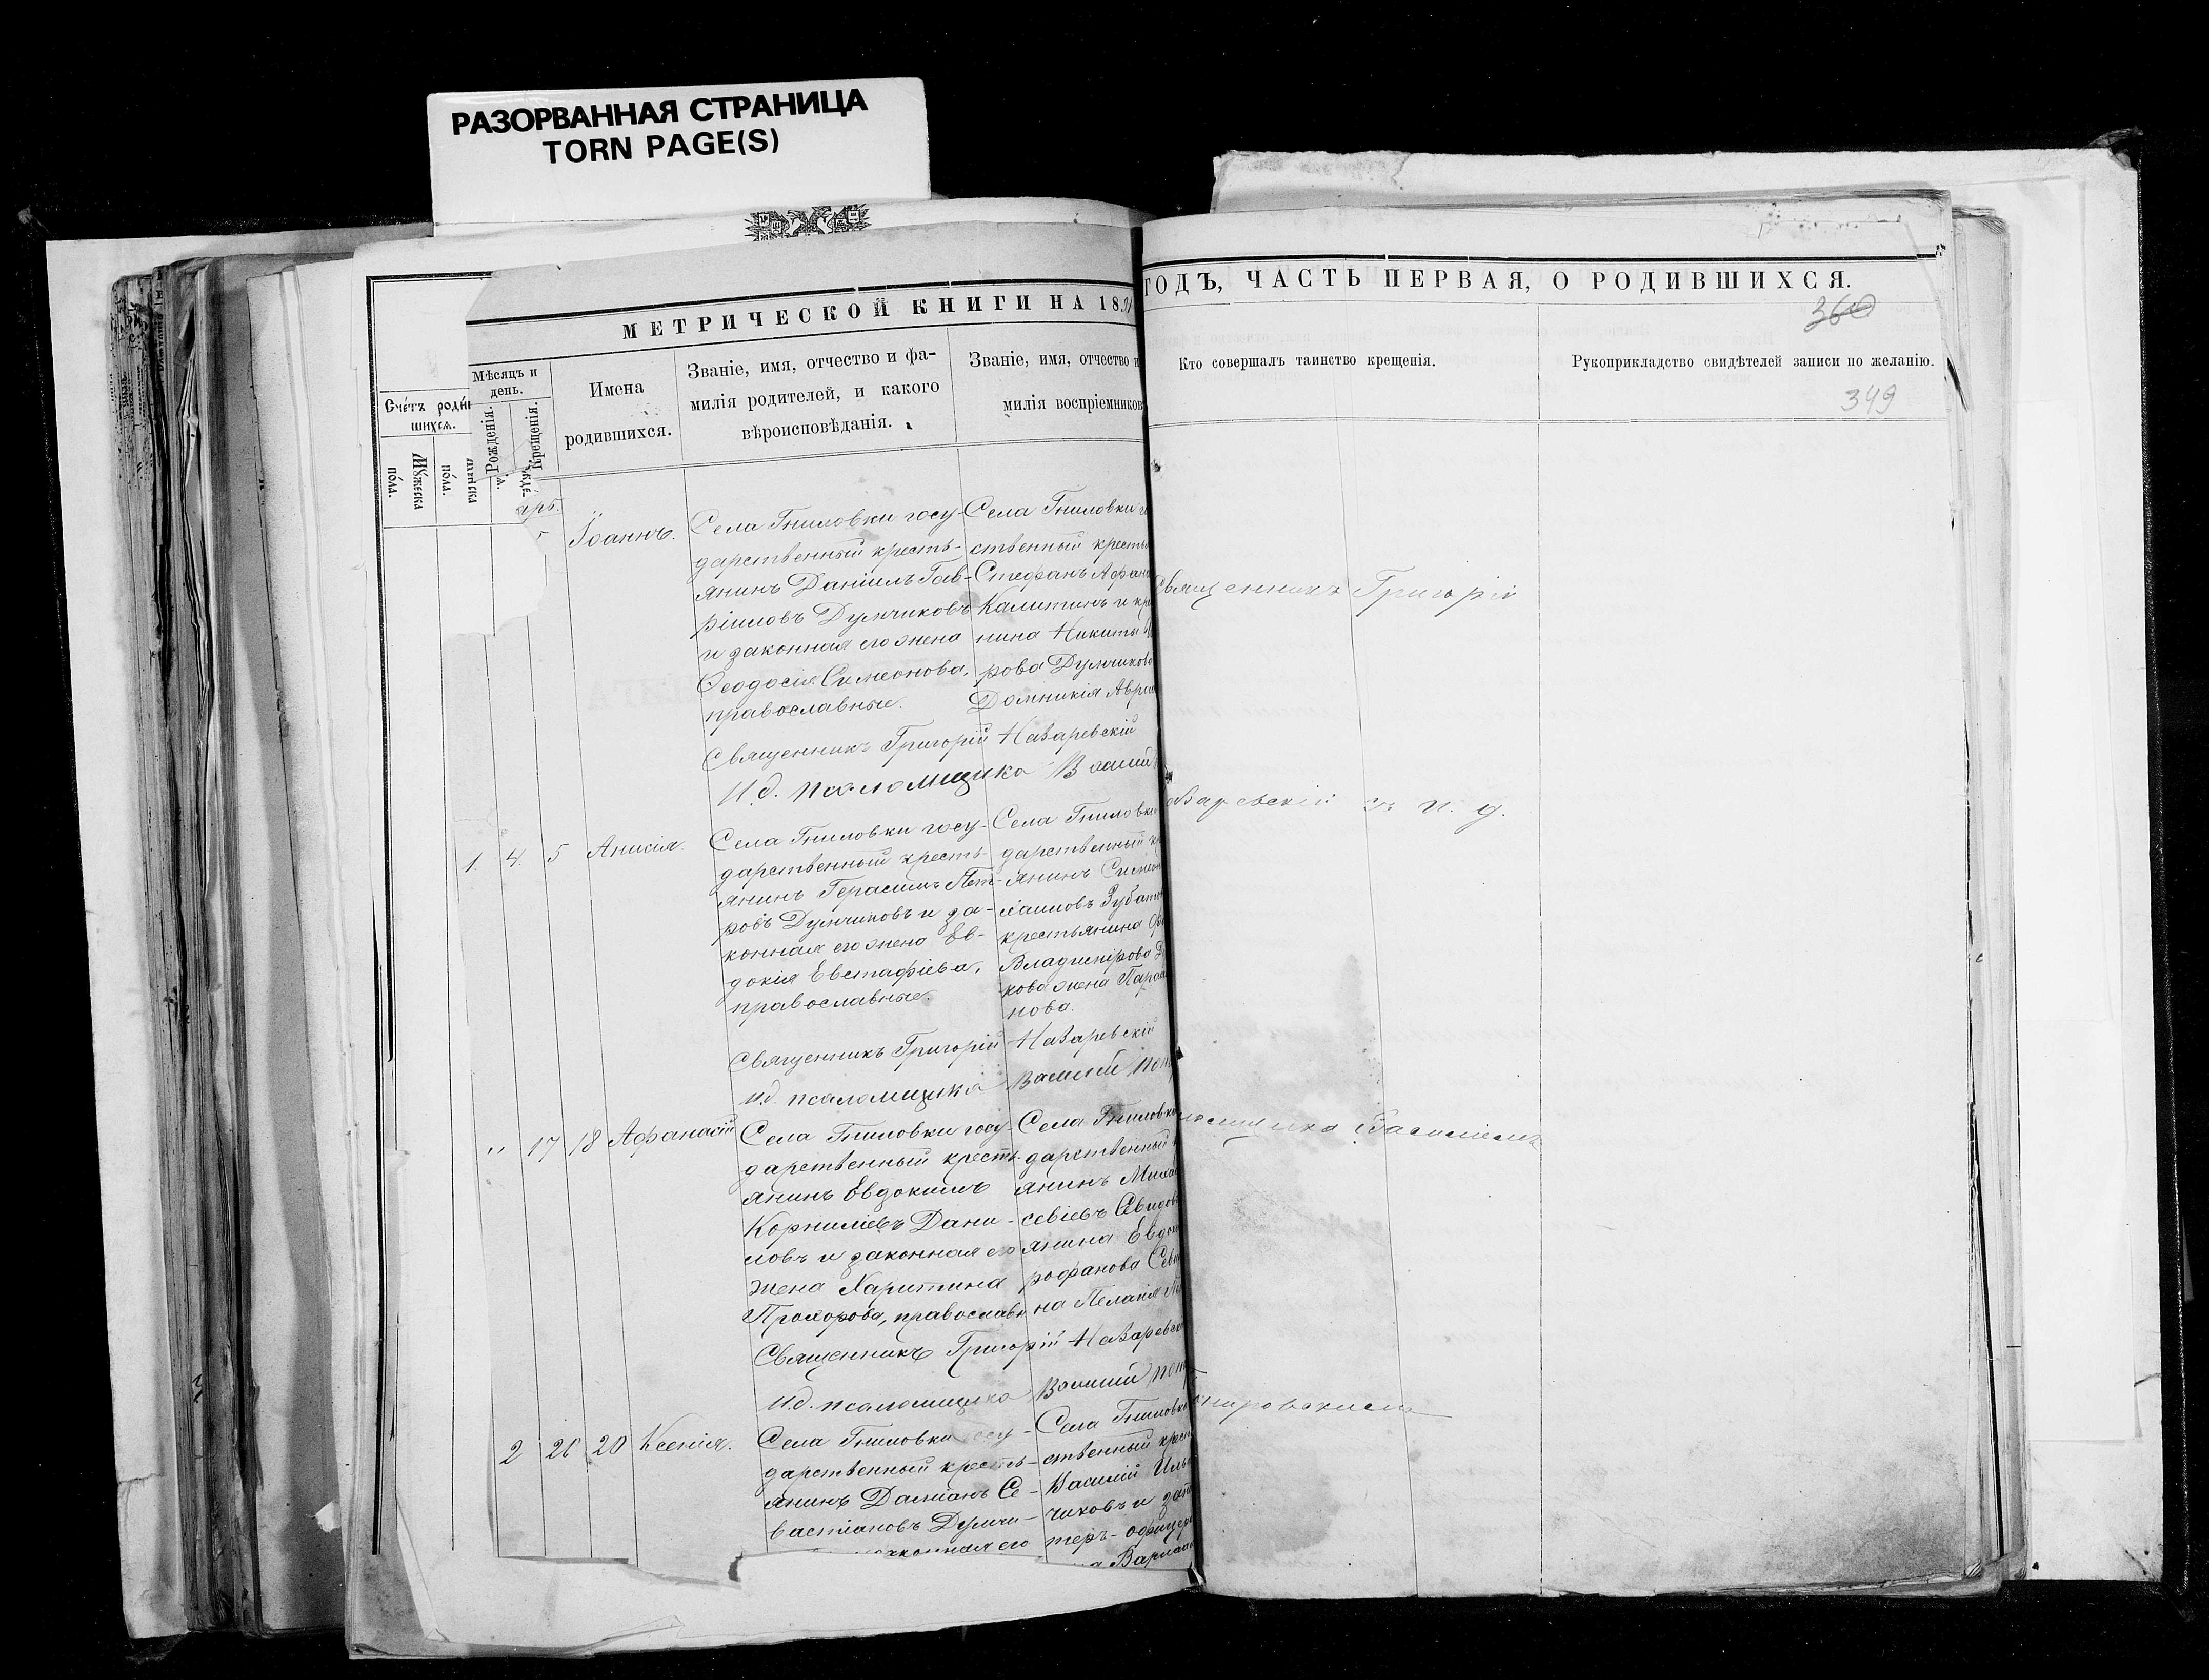 РАЗОРВАННАЯ СТРАНИЦА
TORN PAGE(S)
МЕТРИЧЕСКОЙ КНИГИ НА 189
ГОДЪ, ЧАСТЬ ПЕРВАЯ, О РОДИВШИХСЯ.
360
349
Счетъ роди
шихся.
Мужеска
пола.
пола.
Мѣсяцъ и
день.
Рожденія.
Крещенія.
Имена
родившихся.
Званіе, имя, отчество и фа-
милія родителей, и какого
вѣроисповѣданія.
Званіе, имя, отчество и
милія воспріемников
Кто совершалъ таинство крещенія.
Рукоприкладство свидѣтелей записи по желанію.
Іоаннъ.
Села Гниловки госу-
дарственный кресть-
янинъ Даніилъ Гав-
ріиловъ Думчиковъ
и законная его жена
Ѳеодосія Симеонова,
православные.
Села Гниловки г
ственный крестья
Стефанъ Афана
Калитинъ и кр
нина Никиты
рова Думчикова
Домникія Авра
Священникъ Григорій Назаревскій
И.д. псаломщика Васили
1. 4. 5 Анисія.
Села Гниловки госу-
дарственный кресть-
янинъ Герасимъ Пет-
ровъ Думчиковъ и за-
конная его жена Ев-
докія Евстафіева,
православные.
Села Гниловки
дарственный к
янинъ Симеон
крестьянина
Владимірова Д
кова жена Пара
нова.
Священникъ Григорій Назаревскій
И.д. псаломщика Василій Поп
" 17 18 Афанасій
Села Гниловки госу-
дарственный кресть-
янинъ Евдокимъ
Корниліевъ Дани-
ловъ и законная его
жена Харитина
Прохорова, православн
Села Гниловки
дарственный к
янинъ Миха
севіевъ
янина Евдок
рофанова
на Пелагія
Священникъ Григорій Назаревск
И.д. псаломщика Василий Поп
2 20 Ксенія.
Села Гниловки госу-
дарственный кресть-
янинъ Даміанъ Се-
вастіановъ Думчи-
законная его
Села Гниловки
ственный крест
Василій Иль
чиковъ и
теръ-офицер
а Варлаа
Священникъ Григорій
азаревскій съ и. д.
ломщика Василіемъ